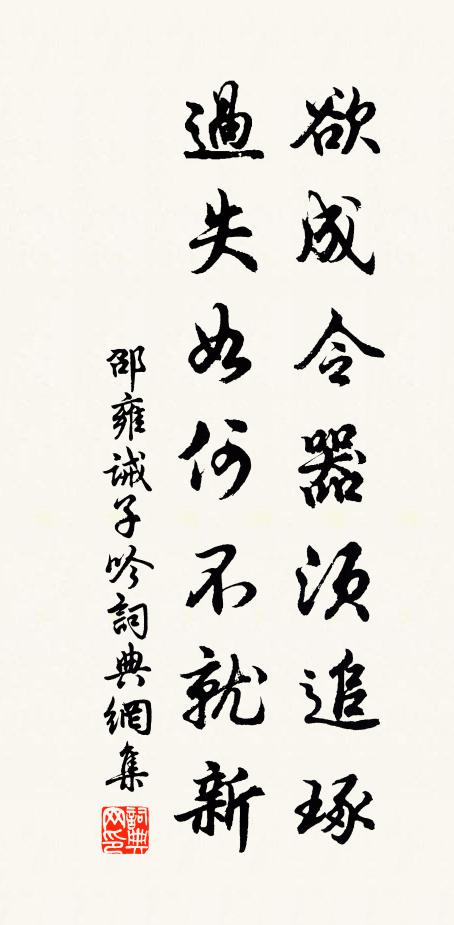 欲成令器須追琢
過失如何不就新
邵雍誡子吟詞典網集
詞典網印